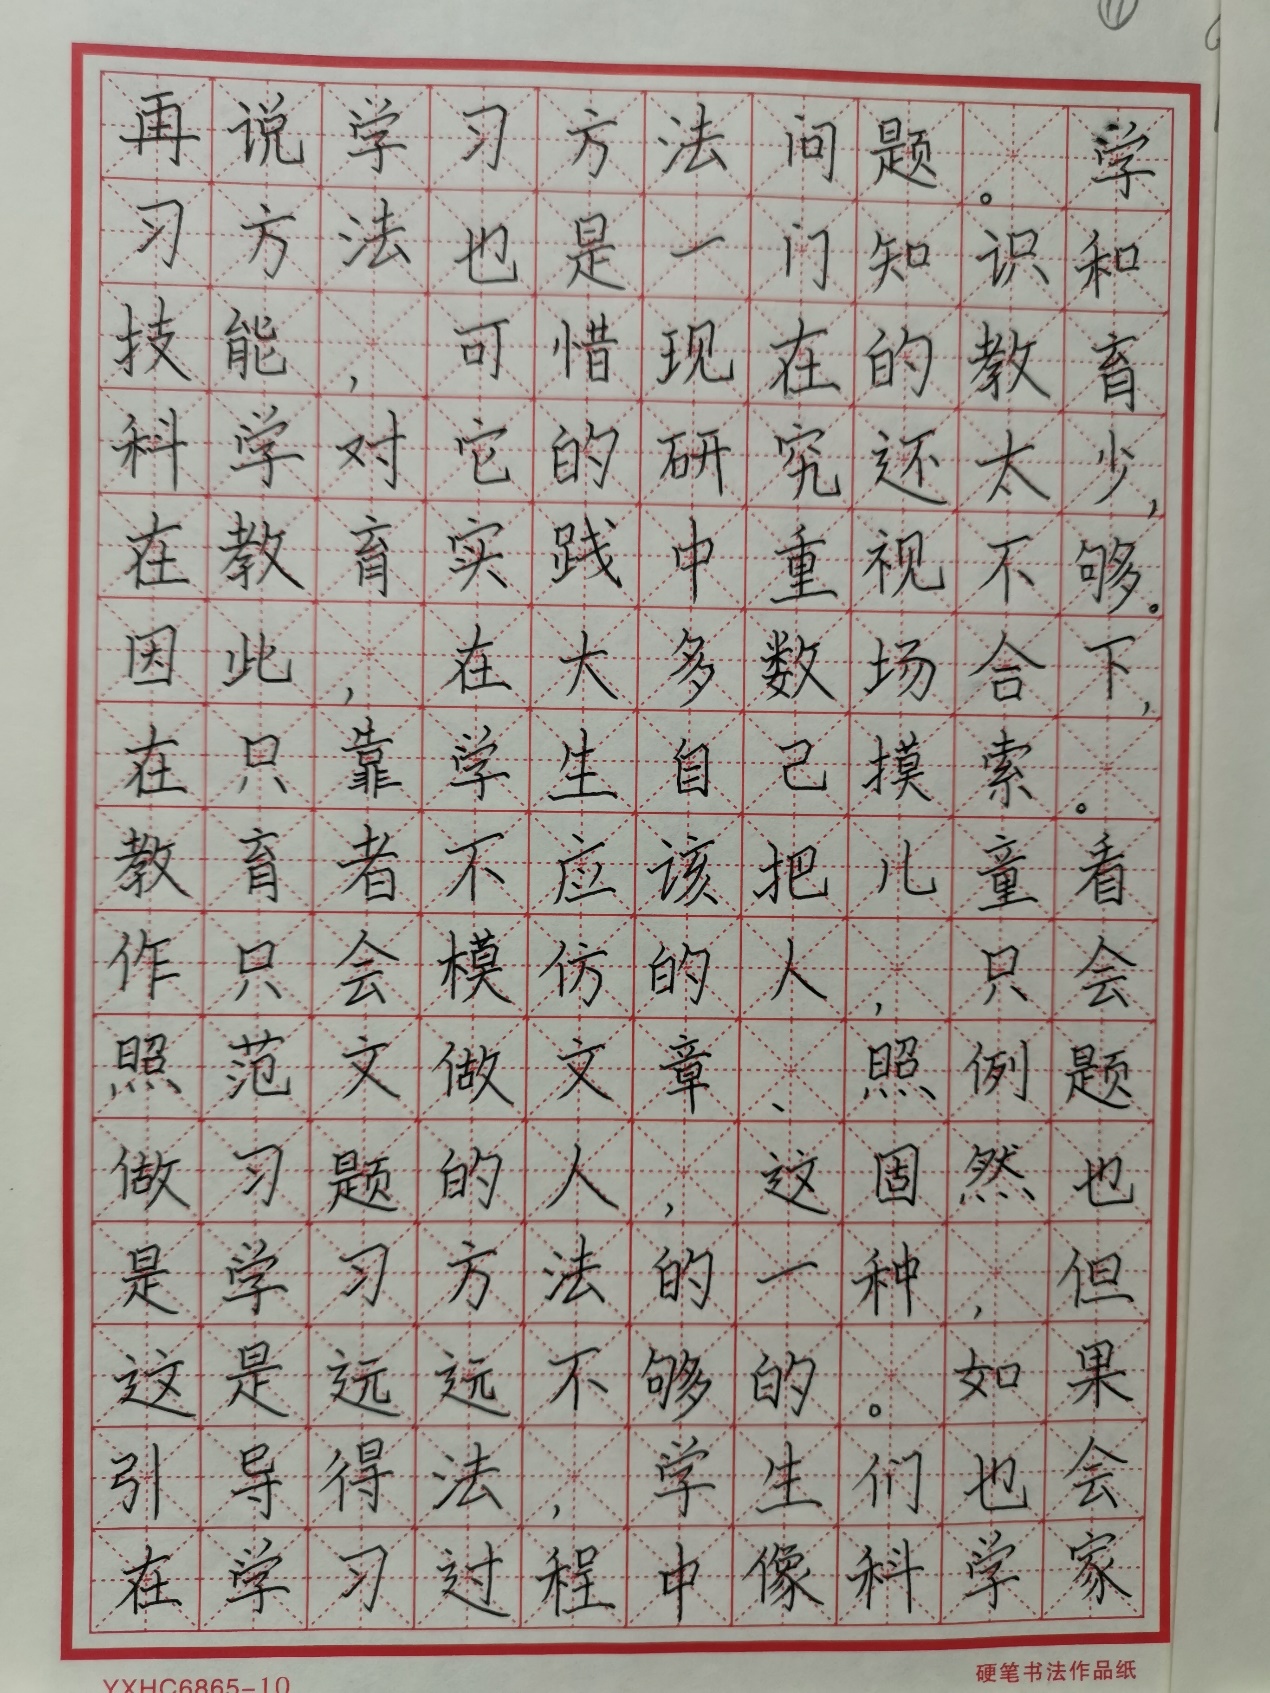 ⑰
再说学习方法问题。学
习方法也是一门知识和
技能，可惜现在的教育
科学对它的研究还太少，
在教育实践中重视不够。
因此，在大多数场合下，
在只靠学生自己摸索。
教育者不应该把儿童看
作只会模仿的人，只会
照范文做文章、照例题
做习题的人，这固然也
是学习方法的一种，但
这是远远不够的。如果
引导得法，学生们也会
在学习过程中像科学家
YXHC6865-10
硬笔书法作品纸